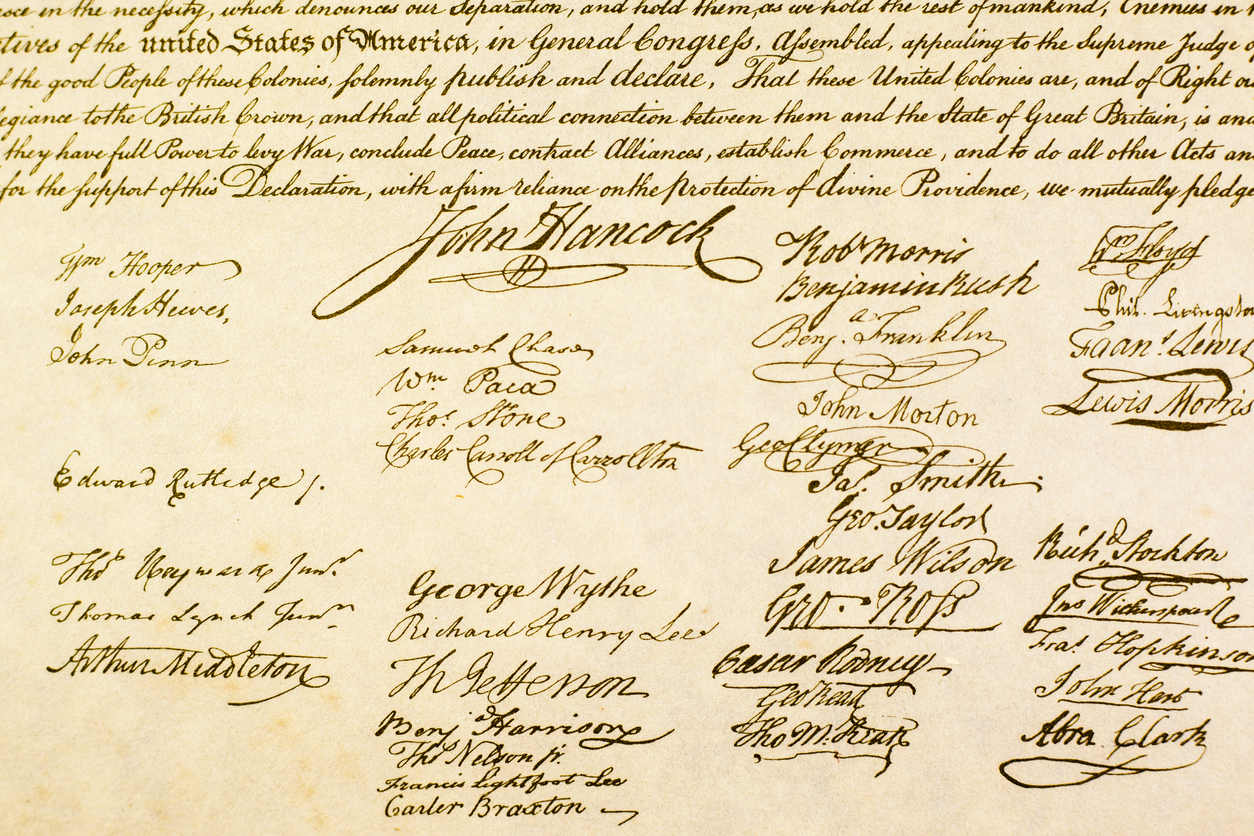 nce in the necessity, which denounces our Separation, and hold them, as we hold the rest of mankind, Enemies in
tives of the united States of America, in General Congress, Assembled, appealing to the Supreme Judge
f the good People of these Colonies, solemnly publish and declare, That these United Colonies are, and of Right
legiance to the British Crown, and that all political connection between them and the State of Great Britain, is and
they have full Power to levy War, conclude Peace, contract Alliances, establish Commerce, and to do all other Acts and
for the support of this Declaration, with a firm reliance on the protection of divine Providence, we mutually pledge
John Hancock
Wm Hooper
Joseph Hewes,
John Penn
Edward Rutledge /.
Thos Heyward Junr.
Thomas Lynch Junr.
Arthur Middleton
Samuel Chase
Wm. Paca
Thos. Stone
Charles Carroll of Carrollton
George Wythe
Richard Henry Lee
Th Jefferson
Benja Harrison
Thos Nelson jr.
Francis Lightfoot Lee
Carter Braxton
Robt Morris
Benjamin Rush
Benja. Franklin
John Morton
Geo Clymer
Jas. Smith.
Geo. Taylor
James Wilson
Geo. Ross
Caesar Rodney
Geo Read
Tho M:Kean
Wm Floyd
Phil. Livingston
Frans. Lewis
Lewis Morris
Richd. Stockton
Jno Witherspoon
Fras. Hopkinson
John Hart
Abra Clark